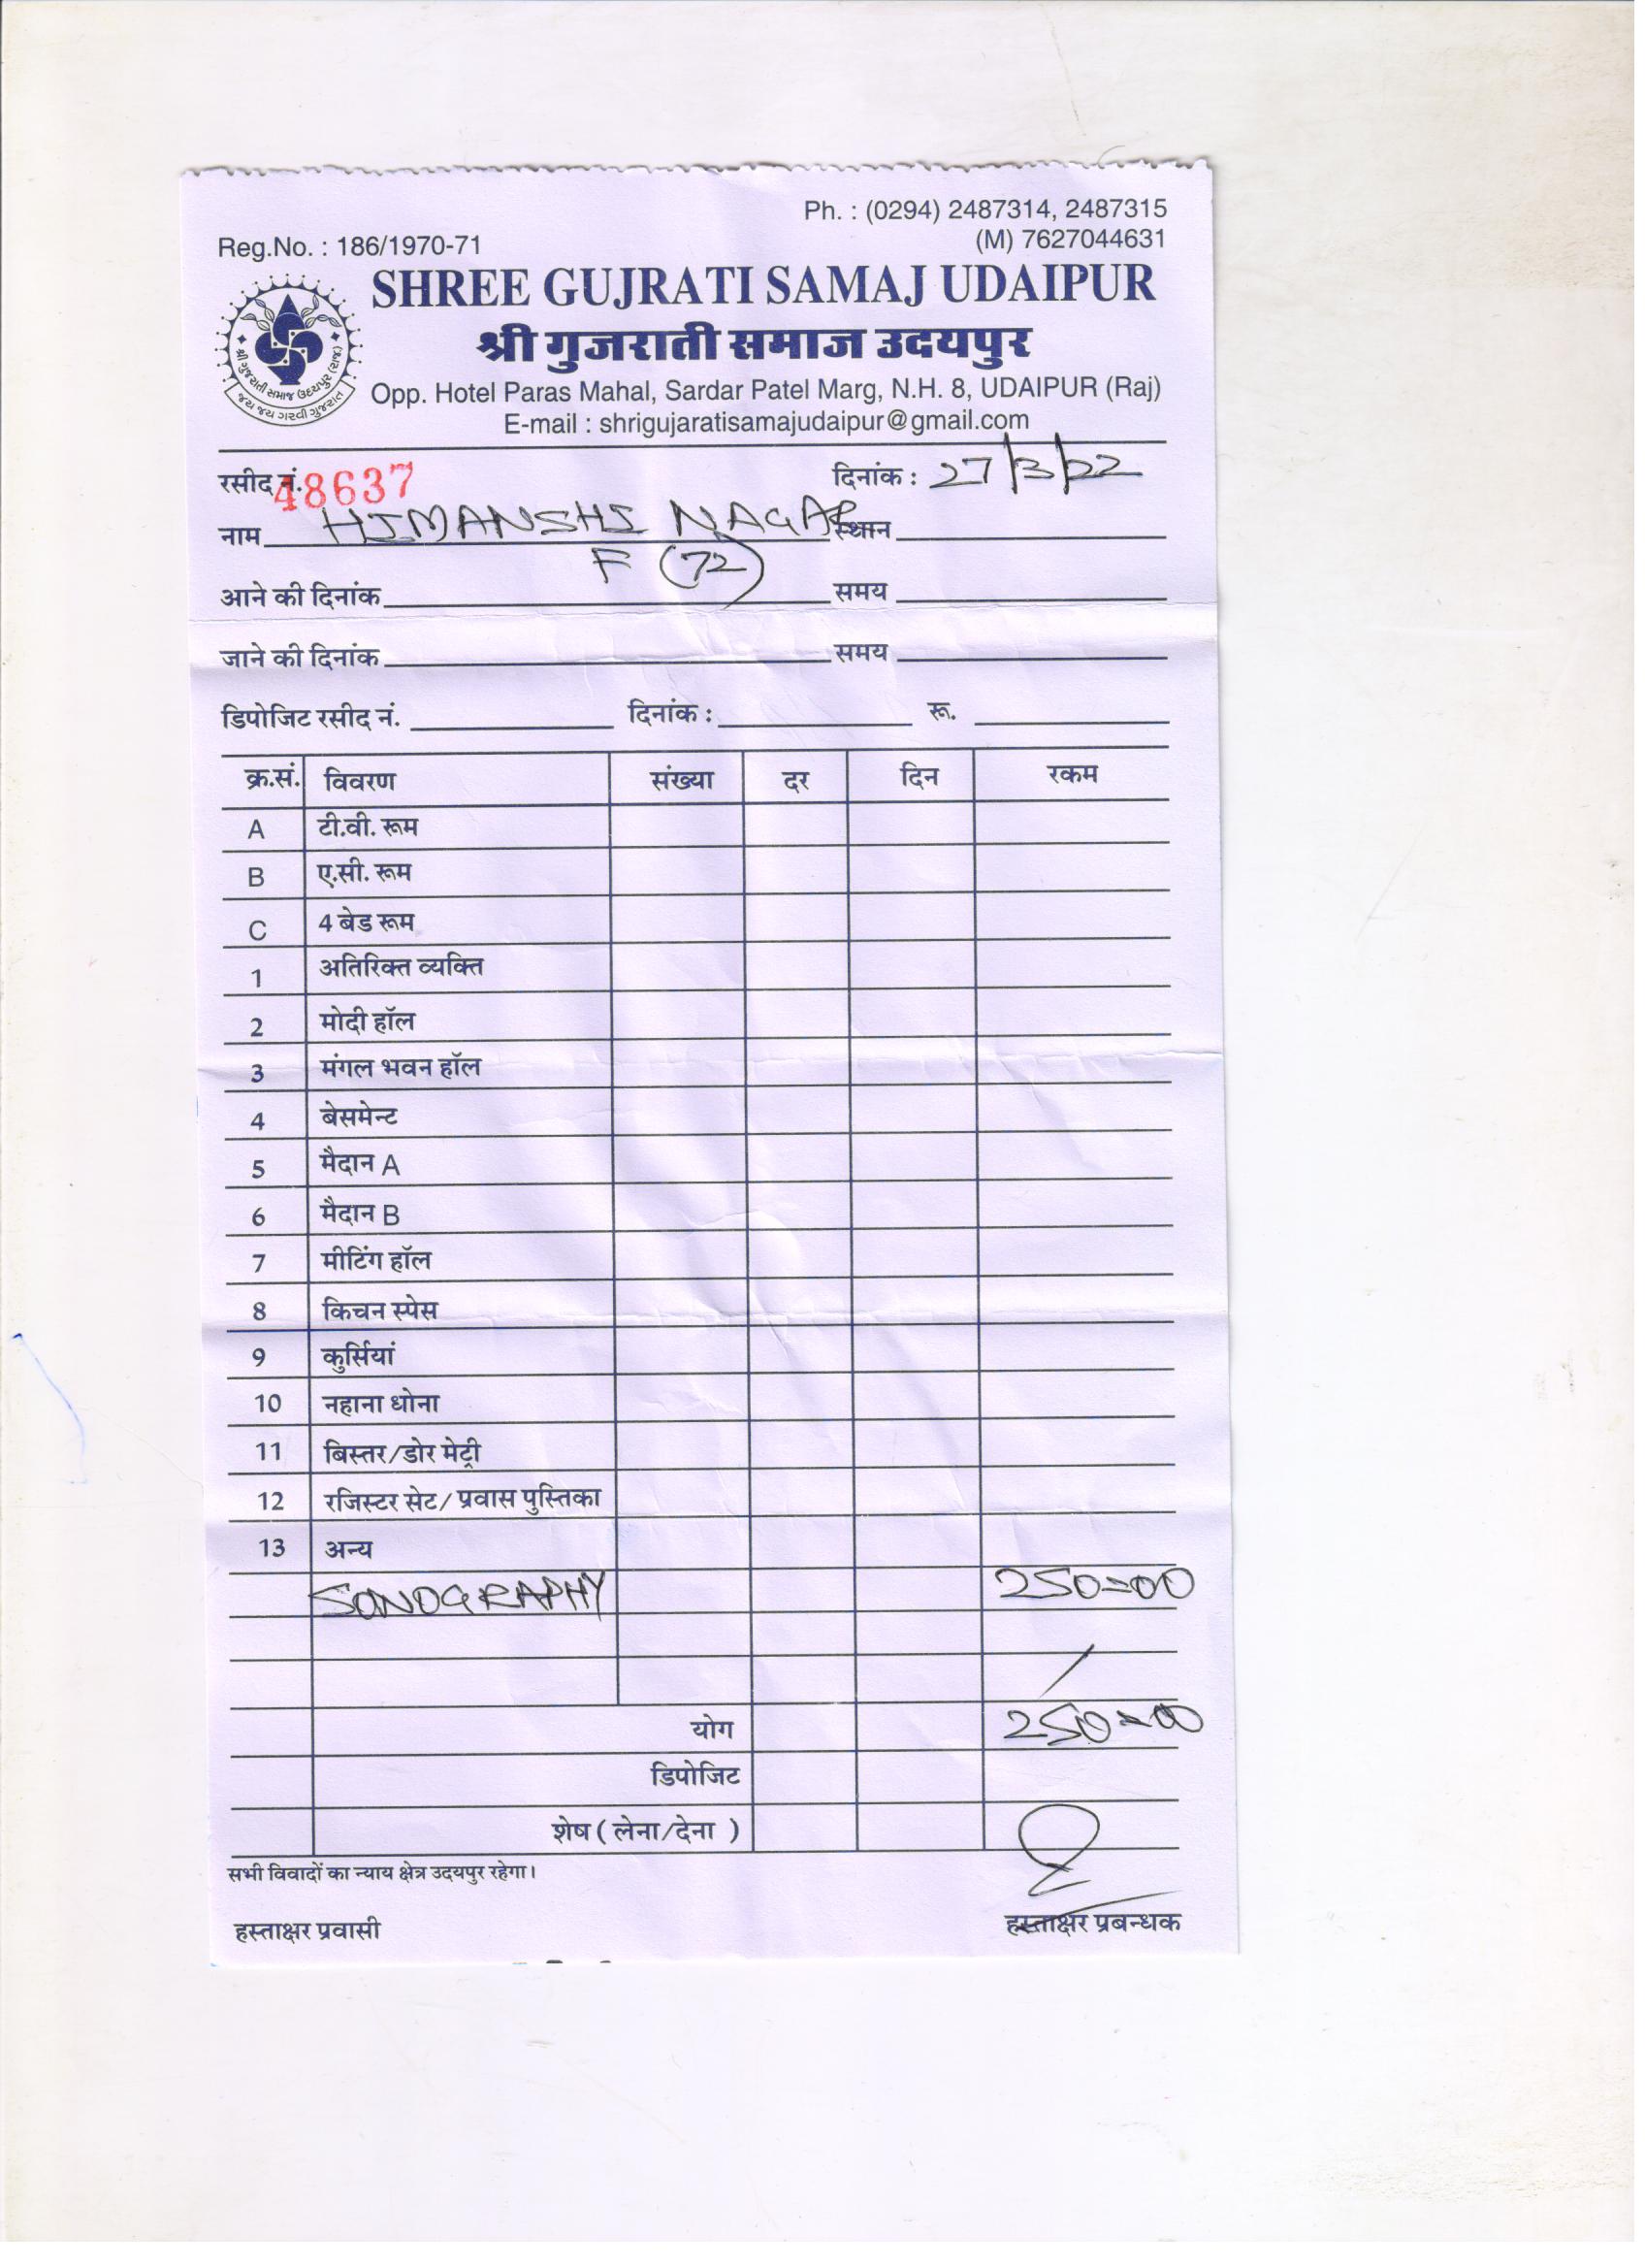 Ph. : (0294) 2487314, 2487315
Reg.No. : 186/1970-71 (M) 7627044631
SHREE GUJRATI SAMAJ UDAIPUR
श्री गुजराती समाज उदयपुर
Opp. Hotel Paras Mahal, Sardar Patel Marg, N.H. 8, UDAIPUR (Raj)
E-mail : shrigujaratisamajudaipur@gmail.com
શ્રી ગુજરાતી સમાજ ઉદયપુર (રાજ.)
જય જય ગરવી ગુજરાત
रसीद नं. 48637 दिनांक : 27/3/22
नाम HIMANSHI NAGAR स्थान
F (72)
आने की दिनांक समय
जाने की दिनांक समय
डिपोजिट रसीद नं. दिनांक : रू.
क्र.सं. विवरण संख्या दर दिन रकम
A टी.वी. रूम
B ए.सी. रूम
C 4 बेड रूम
1 अतिरिक्त व्यक्ति
2 मोदी हॉल
3 मंगल भवन हॉल
4 बेसमेन्ट
5 मैदान A
6 मैदान B
7 मीटिंग हॉल
8 किचन स्पेस
9 कुर्सियां
10 नहाना धोना
11 बिस्तर/डोर मेट्री
12 रजिस्टर सेट/ प्रवास पुस्तिका
13 अन्य
SONOGRAPHY 250=00
योग 250=00
डिपोजिट
शेष ( लेना/देना )
सभी विवादों का न्याय क्षेत्र उदयपुर रहेगा।
हस्ताक्षर प्रवासी हस्ताक्षर प्रबन्धक